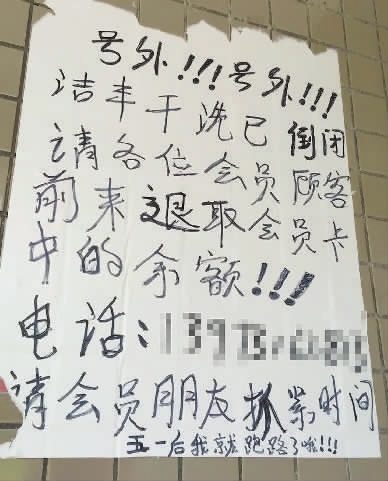 号外!!!号外!!!
洁丰干洗已倒闭
请各位会员顾客
前来退取会员卡
中的余额!!!
电话:139
请会员朋友抓紧时间
五一后我就跑路了哦!!!